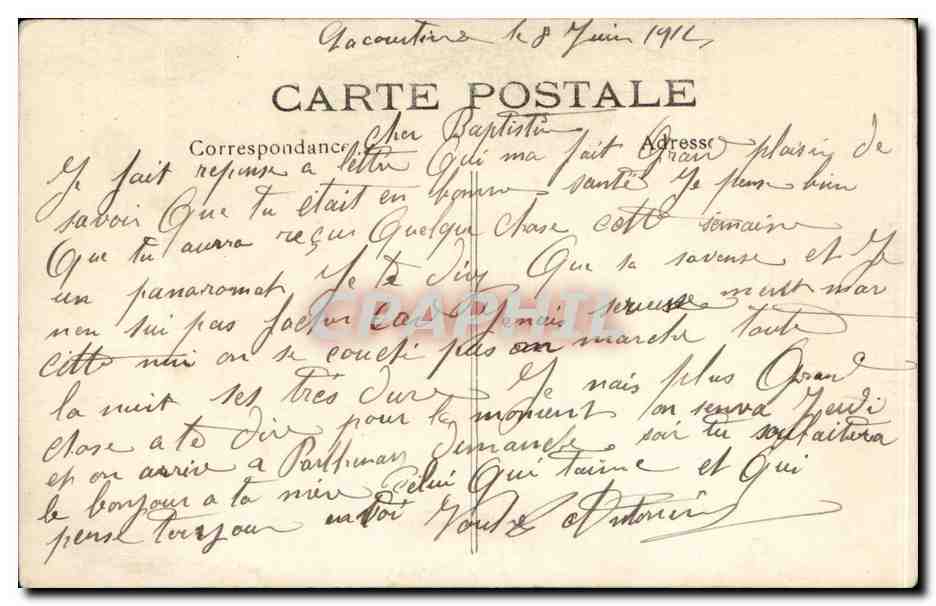 Lacourtine le 8 Juin 1912
CARTE POSTALE
Correspondance Adresse
cher Baptistin
Je fait reponse a lettre Qui ma fait Grand plaisir de
savoir Que tu était en bonne santé Je pense bien
Que tu aura reçus Quelque chose cette semaine
un panaromat Je te dire Que sa savense et Je
nen sui pas facher car Je nais serieusement mar
cette nui on se couché pas on marche toute
la nuit ses très dur Je nais plus Grand
chose a te dire pour le moment on senva Jeudi
et on arrive a dimanche soir tu souhaitera
le bonjour a ta mère Celui Qui taime et Qui
pense toujour a toi Antonin
CRAPHIL